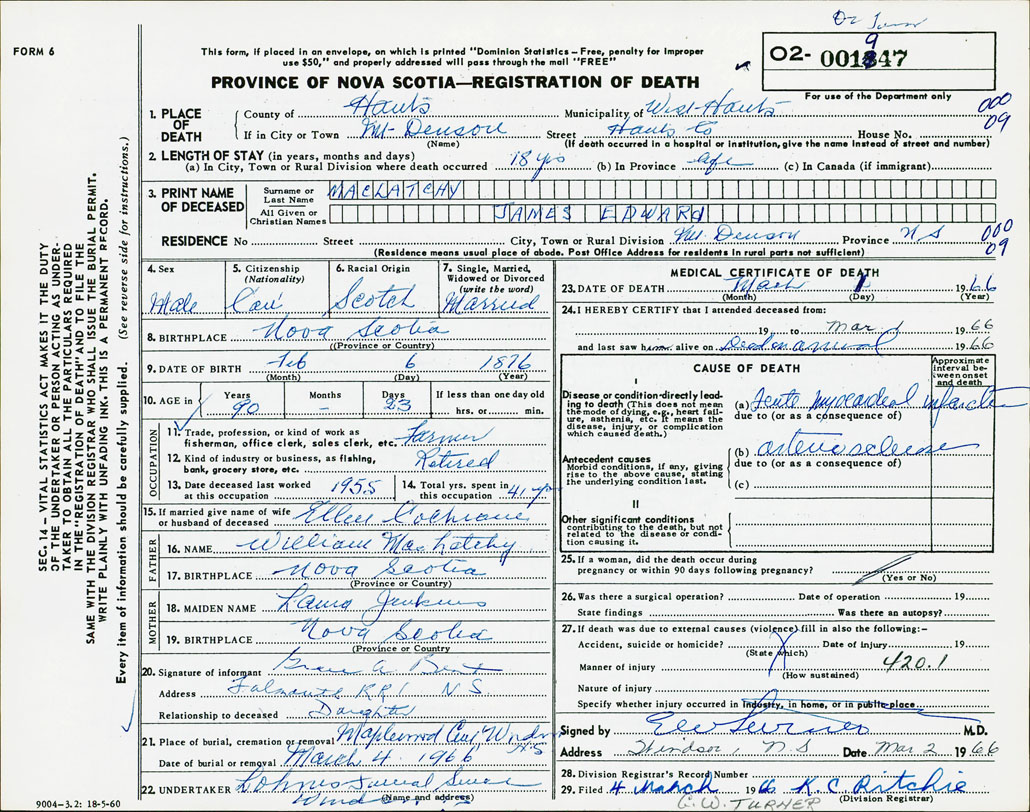 FORM 6
This form, if placed in an envelope, on which is printed "Dominion Statistics – Free, penalty for improper
use $50," and properly addressed will pass through the mail "FREE"
PROVINCE OF NOVA SCOTIA—REGISTRATION OF DEATH
02- 001947
For use of the Department only
1. PLACE OF DEATH
County of Hants Municipality of West Hants 000
If in City or Town Mt Denson Street Hants Co House No. 09
(Name) (If death occurred in a hospital or institution, give the name instead of street and number)
2. LENGTH OF STAY (in years, months and days)
(a) In City, Town or Rural Division where death occurred 18 yrs (b) In Province life (c) In Canada (if immigrant)
3. PRINT NAME OF DECEASED
Surname or Last Name MACLATCHY
All Given or Christian Names JAMES EDWARD
RESIDENCE No Street City, Town or Rural Division Mt. Denson Province N S 000 09
(Residence means usual place of abode. Post Office Address for residents in rural parts not sufficient)
4. Sex Male
5. Citizenship (Nationality) Can
6. Racial Origin Scotch
7. Single, Married, Widowed or Divorced (write the word) Married
8. BIRTHPLACE Nova Scotia
(Province or Country)
9. DATE OF BIRTH Feb 6 1876
(Month) (Day) (Year)
10. AGE in Years 90 Months – Days 23 If less than one day old hrs. or min.
OCCUPATION
11. Trade, profession, or kind of work as fisherman, office clerk, sales clerk, etc. Farmer
12. Kind of industry or business, as fishing, bank, grocery store, etc. Retired
13. Date deceased last worked at this occupation 1955
14. Total yrs. spent in this occupation 41 yrs
15. If married give name of wife or husband of deceased Ellen Cochrane
FATHER
16. NAME William MacLatchy
17. BIRTHPLACE Nova Scotia
(Province or Country)
MOTHER
18. MAIDEN NAME Laura Jenkins
19. BIRTHPLACE Nova Scotia
(Province or Country)
20. Signature of informant Grace A Bent
Address Falmouth RR1 N S
Relationship to deceased Daughter
21. Place of burial, cremation or removal Maplewood Windsor NS
Date of burial or removal March 4 1966
22. UNDERTAKER Funeral
(Name and address)
9004-3.2: 18-5-60
MEDICAL CERTIFICATE OF DEATH
23. DATE OF DEATH March 1 1966
(Month) (Day) (Year)
24. I HEREBY CERTIFY that I attended deceased from:
19 to Mar. 1 1966
and last saw him alive on Dead on arrival 1966
CAUSE OF DEATH
Approximate interval between onset and death
I
Disease or condition directly leading to death (This does not mean the mode of dying, e.g., heart failure, asthenia, etc. It means the disease, injury, or complication which caused death.)
(a) Acute myocardial infarction
due to (or as a consequence of)
Antecedent causes
Morbid conditions, if any, giving rise to the above cause, stating the underlying condition last.
(b) arteriosclerosis
due to (or as a consequence of)
(c)
II
Other significant conditions
contributing to the death, but not related to the disease or condition causing it.
25. If a woman, did the death occur during pregnancy or within 90 days following pregnancy?
(Yes or No)
26. Was there a surgical operation? Date of operation 19
State findings Was there an autopsy?
27. If death was due to external causes (violence) fill in also the following:–
Accident, suicide or homicide? Date of injury 19
(State which)
Manner of injury 420.1
(How sustained)
Nature of injury
Specify whether injury occurred in Industry, in home, or in public place
Signed by M.D.
Address Windsor, N S Date Mar 2 1966
28. Division Registrar's Record Number
29. Filed 4 March 1966 K C Ritchie
(Division Registrar)
E.W. TURNER
SEC. 14 – VITAL STATISTICS ACT MAKES IT THE DUTY
OF THE UNDERTAKER OR PERSON ACTING AS UNDERTAKER TO OBTAIN ALL THE PARTICULARS REQUIRED
IN THE "REGISTRATION OF DEATH" AND TO FILE THE
SAME WITH THE DIVISION REGISTRAR WHO SHALL ISSUE THE BURIAL PERMIT.
WRITE PLAINLY WITH UNFADING INK. THIS IS A PERMANENT RECORD.
Every item of information should be carefully supplied. (See reverse side for instructions.)